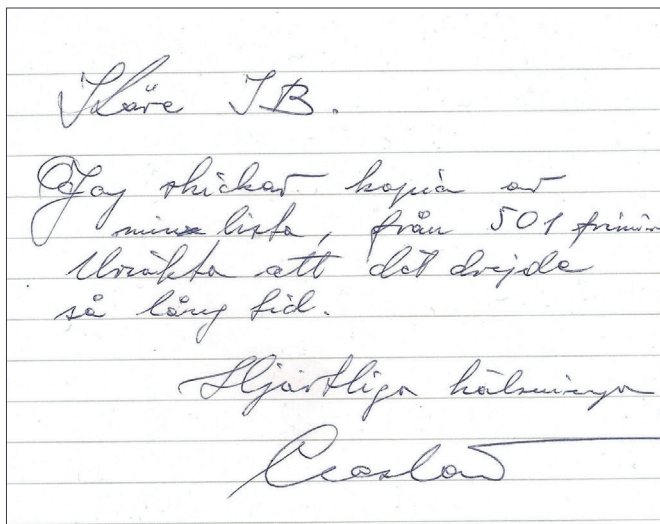 Käre IB.
Jag skickar kopia av
min lista, från 501 frimär
Ursäkta att det dröjde
så lång tid.
Hjärtliga hälsningar
Czesław